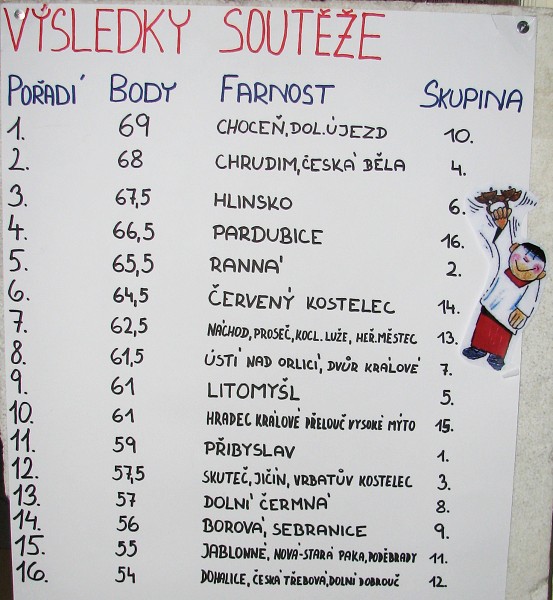 VÝSLEDKY SOUTĚŽE
POŘADÍ BODY FARNOST SKUPINA
1. 69 CHOCEŇ, DOL. ÚJEZD 10.
2. 68 CHRUDIM, ČESKÁ BĚLÁ 4.
3. 67,5 HLINSKO 6.
4. 66,5 PARDUBICE 16.
5. 65,5 RANNÁ 2.
6. 64,5 ČERVENÝ KOSTELEC 14.
7. 62,5 NÁCHOD, PROSEČ, KOCL. LUŽE, HEŘ. MĚSTEC 13.
8. 61,5 ÚSTÍ NAD ORLICÍ, DVŮR KRÁLOVÉ 7.
9. 61 LITOMYŠL 5.
10. 61 HRADEC KRÁLOVÉ PŘELOUČ VYSOKÉ MÝTO 15.
11. 59 PŘIBYSLAV 1.
12. 57,5 SKUTEČ, JIČÍN, VRBATŮV KOSTELEC 3.
13. 57 DOLNÍ ČERMNÁ 8.
14. 56 BOROVÁ, SEBRANICE 9.
15. 55 JABLONNÉ, NOVÁ-STARÁ PAKA, PODĚBRADY 11.
16. 54 DOHALICE, ČESKÁ TŘEBOVÁ, DOLNÍ DOBROUČ 12.